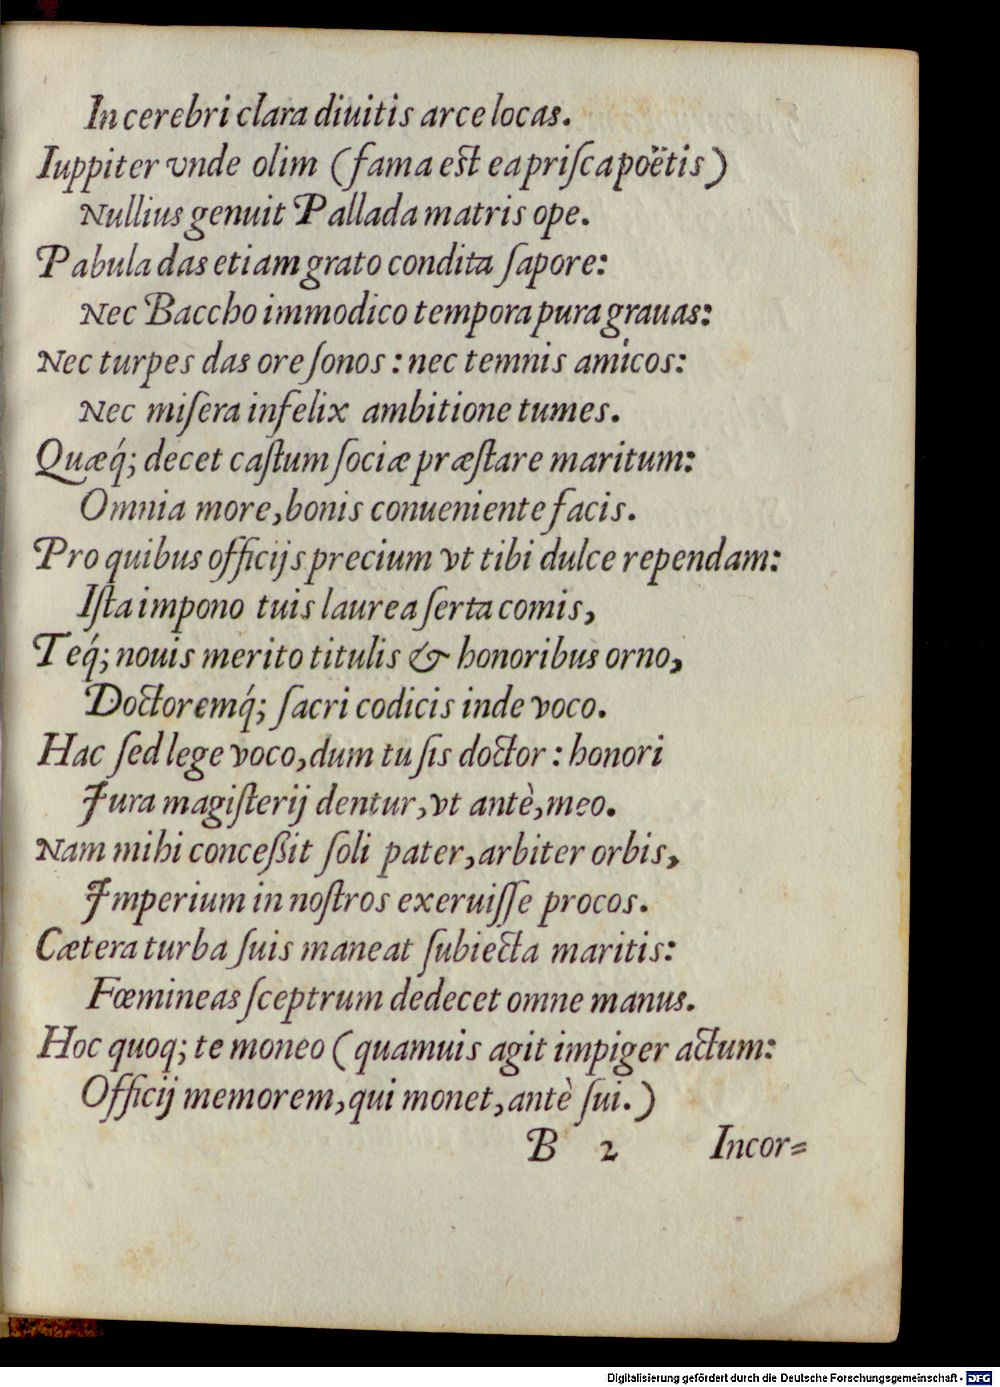 In cerebri clara diuitis arce locas.
Iuppiter vnde olim (fama est ea priſca poëtis)
Nullius genuit Pallada matris ope.
Pabula das etiam grato condita ſapore:
Nec Baccho immodico tempora pura grauas:
Nec turpes das ore ſonos: nec temnis amicos:
Nec miſera infelix ambitione tumes.
Quæq́; decet caſtum ſociæ præſtare maritum:
Omnia more, bonis conueniente facis.
Pro quibus officijs precium vt tibi dulce rependam:
Iſta impono tuis laurea ſerta comis,
Teq́; nouis merito titulis & honoribus orno,
Doctoremq́; ſacri codicis inde voco.
Hac ſed lege voco, dum tu ſis doctor: honori
Jura magiſterij dentur, vt antè, meo.
Nam mihi conceßit ſoli pater, arbiter orbis,
Jmperium in noſtros exeruiſſe procos.
Cætera turba ſuis maneat ſubiecta maritis:
Fœmineas ſceptrum dedecet omne manus.
Hoc quoq; te moneo (quamuis agit impiger actum:
Officij memorem, qui monet, antè ſui.)
B 2 Incor=
Digitalisierung gefördert durch die Deutsche Forschungsgemeinschaft - DFG